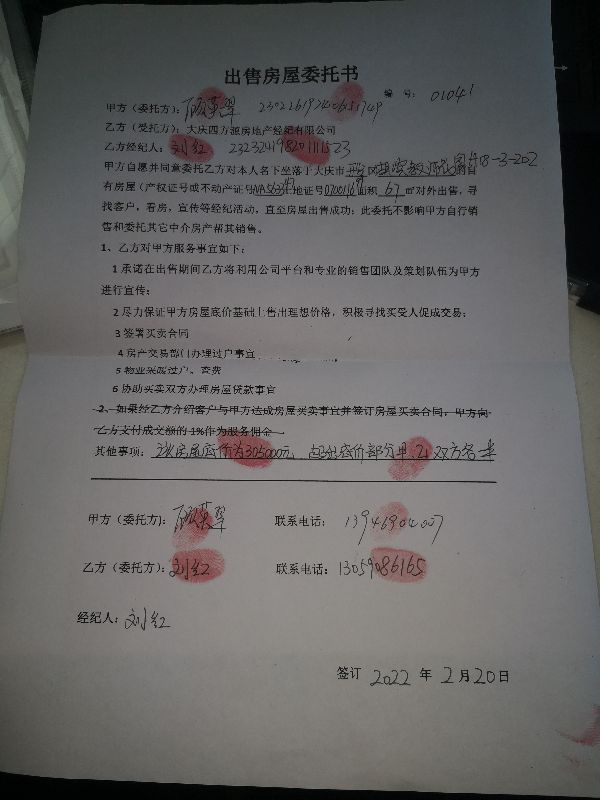 出售房屋委托书
编 号: 01041
甲方（委托方）:
乙方（受托方）: 大庆四方源房地产经纪有限公司
乙方经纪人: 刘红 232324198201111523
甲方自愿并同意委托乙方对本人名下坐落于大庆市 区 18-3-202 自
有房屋（产权证号或不动产证号 土地证号 面积 67 ㎡对外出售，寻
找客户，看房，宣传等经纪活动，直至房屋出售成功；此委托不影响甲方自行销
售和委托其它中介房产帮其销售。
1、乙方对甲方服务事宜如下:
1 承诺在出售期间乙方将利用公司平台和专业的销售团队及策划队伍为甲方
进行宣传;
2 尽力保证甲方房屋底价基础上售出理想价格，积极寻找买受人促成交易;
3 签署买卖合同
4 房产交易部门办理过户事宜
5 物业采暖过户、查费
6 协助买卖双方办理房屋贷款事宜
2、如果经乙方介绍客户与甲方达成房屋买卖事宜并签订房屋买卖合同，甲方向
乙方支付成交额的 1%作为服务佣金
其他事项: 该房屋底价为305000元，超出底价部分甲、乙双方各一半
甲方（委托方): 联系电话: 13946904007
乙方（委托方): 刘红 联系电话: 13059086165
经纪人: 刘红
签订 2022 年 2 月 20 日